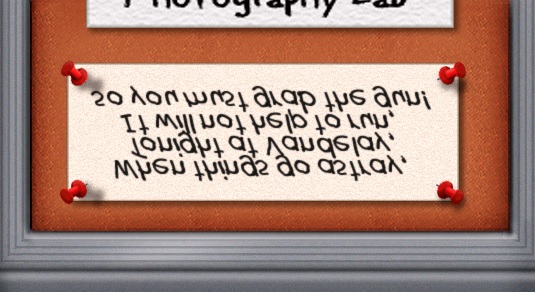 Photography Lab
When things go astray,
Tonight at Vandelay,
It will not help to run,
so you must grab the gun!